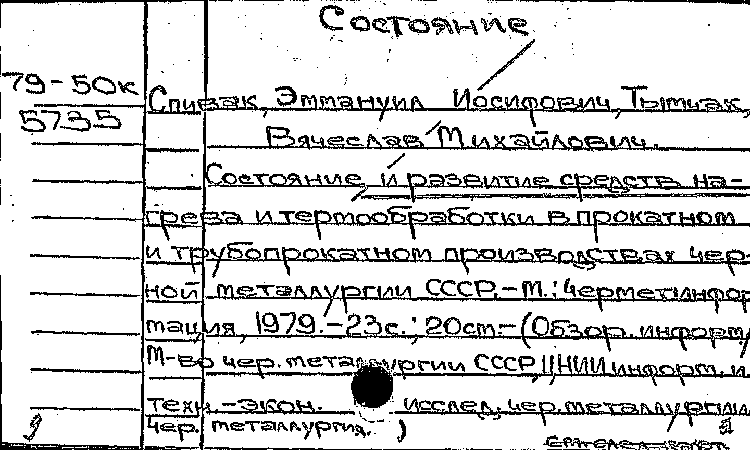 Состояние
79-50к
5735
Спивак, Эммануил Иосифович, Тымчак,
Вячеслав Михайлович.
Состояние и развитие средств на-
грева и термообработки в прокатном
и трубопрокатном производствах чер-
ной металлургии СССР.-М.: Черметинфор
мация, 1979.-23с.; 20см.-(Обзор. информ/
М-во чер. металлургии СССР, ЦНИИ информ. и
техн.-экон. исслед. чер. металлургии
чер. металлургия. )